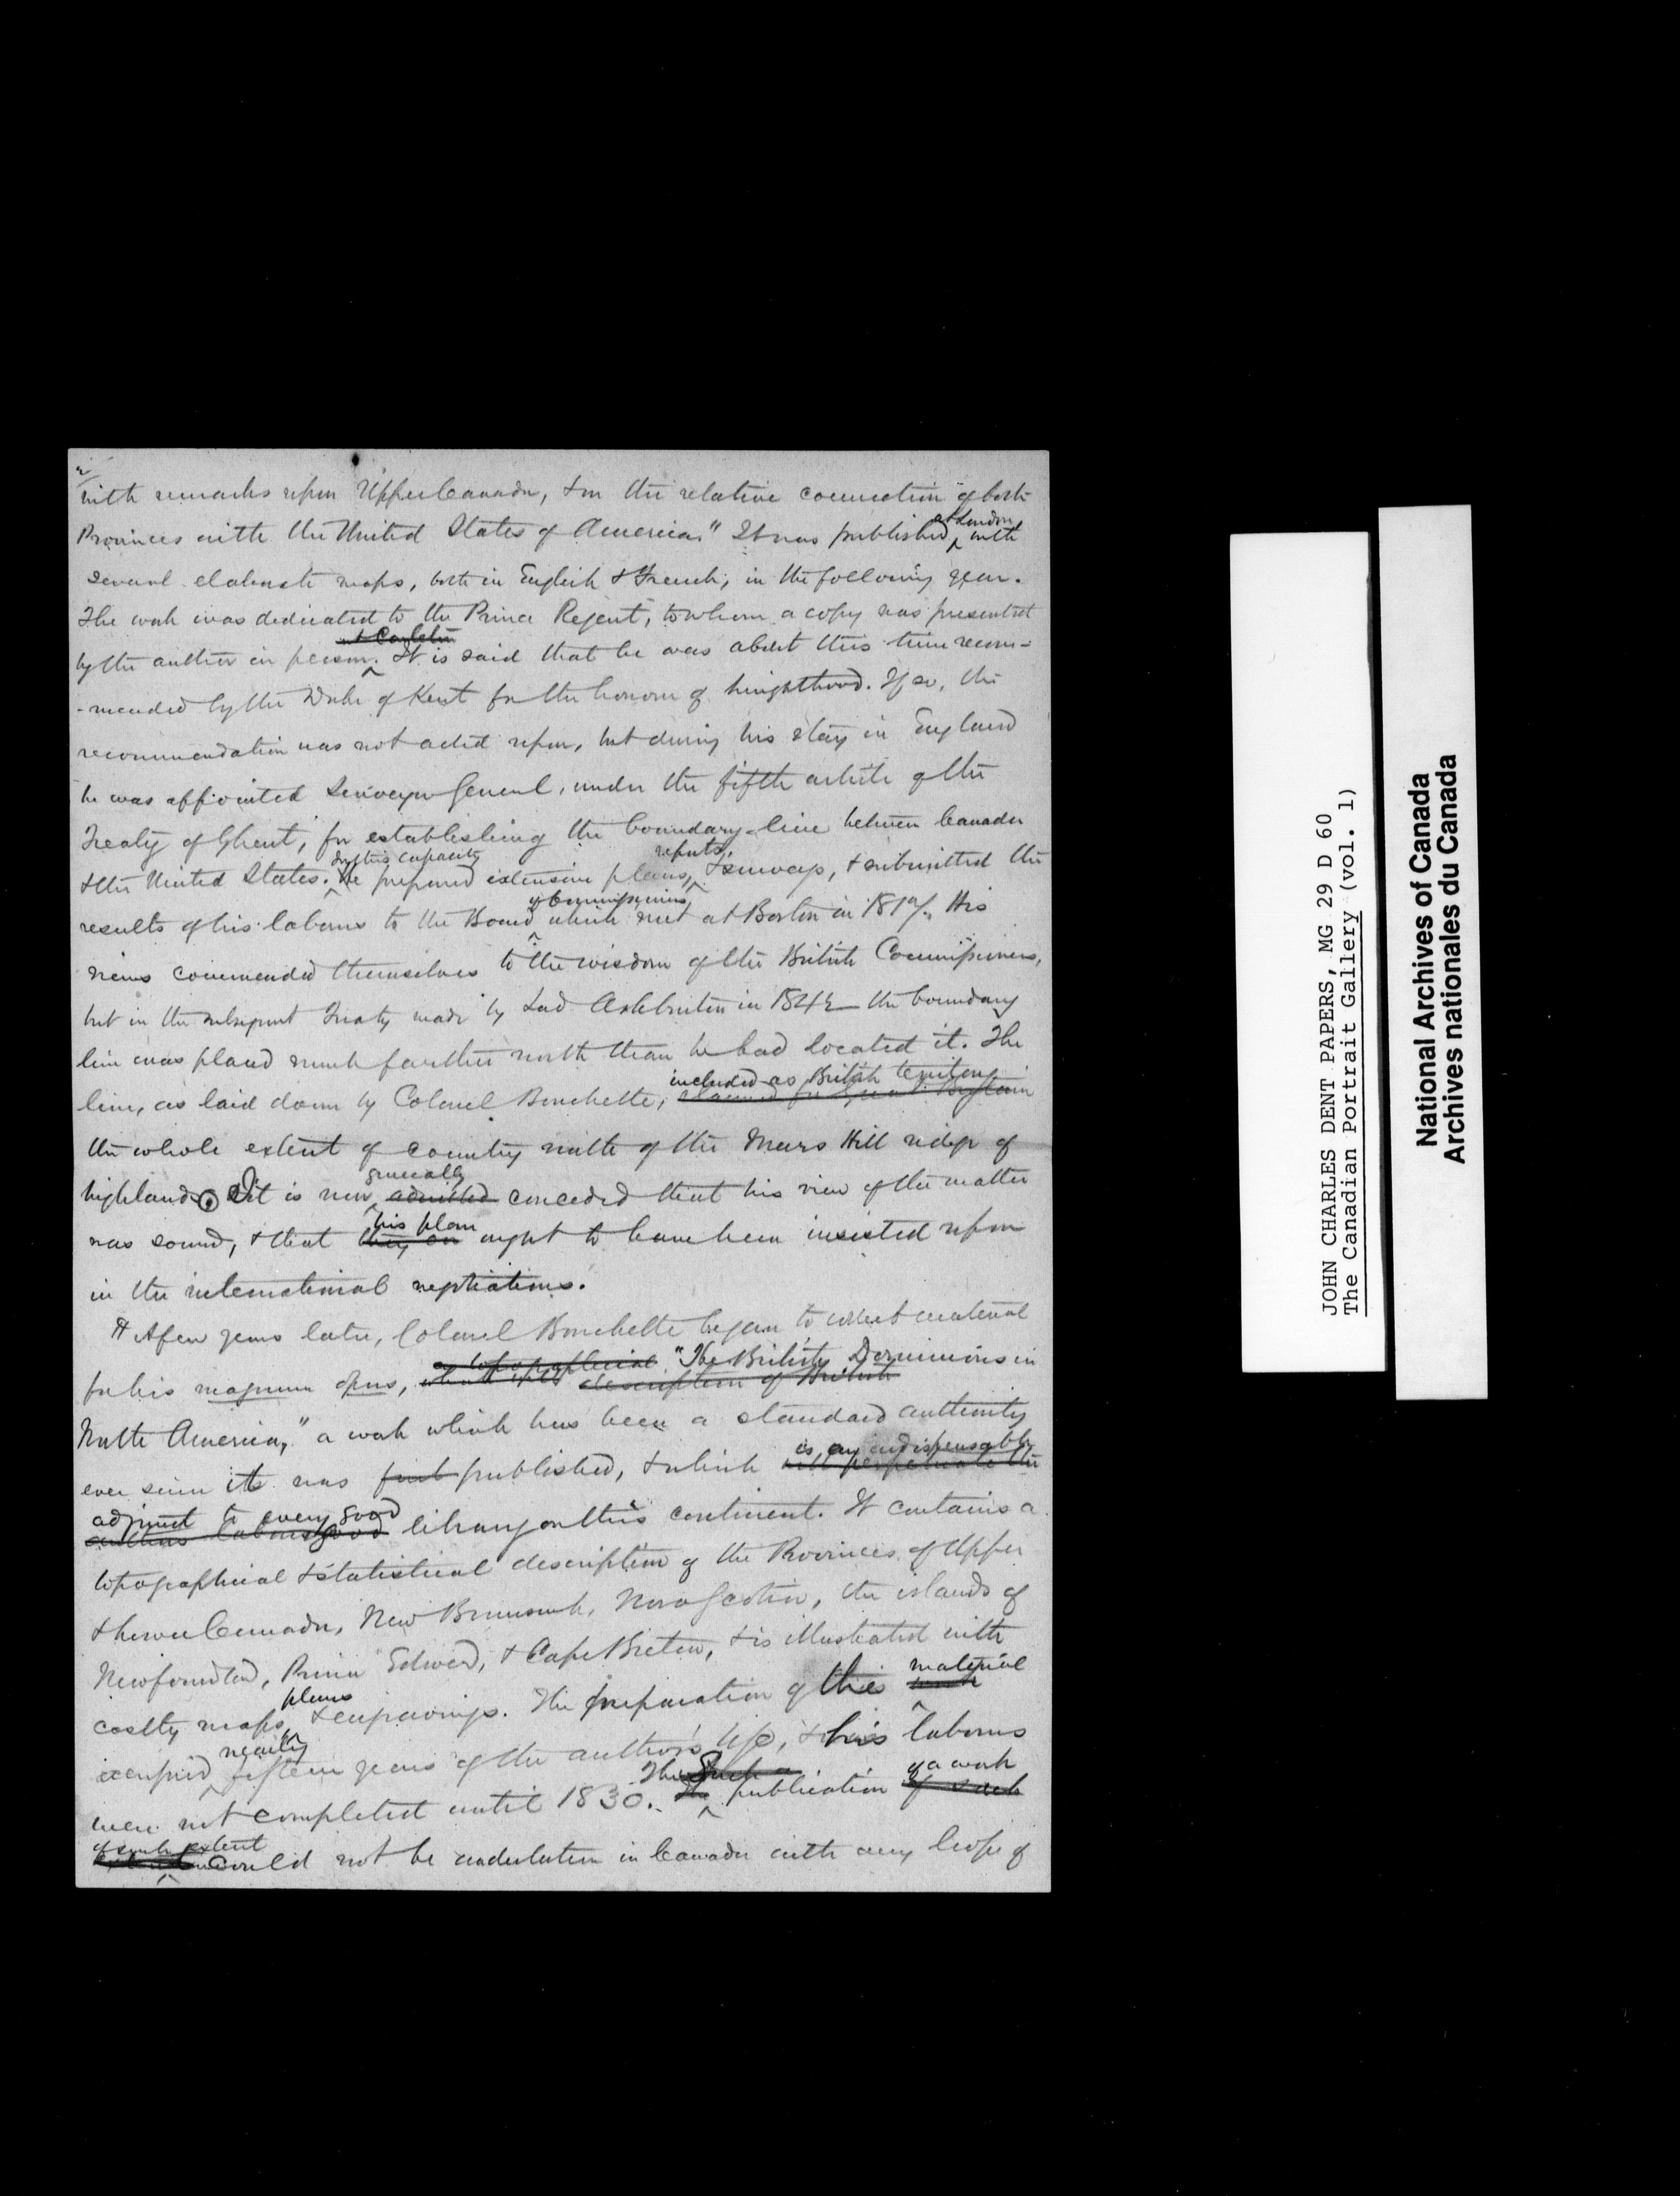 2/
with remarks upon Upper Canada, & on the relative connection of both
at London
Provinces with the United States of America." It was published, with
several elaborate maps, both in English & French, in the following year.
The work was dedicated to the Prince Regent, to whom a copy was presented
at Carleton
by the author in person. It is said that he was about this time recom-
-mended by the Duke of Kent for the honour of knighthood. If so, the
recommendation was not acted upon, but during his stay in England
he was appointed Surveyor General, under the fifth article of the
Treaty of Ghent, for establishing the boundary-line between Canada
In this capacity reports,
& the United States. he prepared extensive plans, & surveys, & submitted the
of Commissioners,
results of his labours to the Board which met at Boston in 1817. His
views commended themselves to the wisdom of the British Commissioners,
but in the subsequent Treaty made by Lord Ashburton in 1842 the boundary
line was placed much farther north than he had located it. The
included as British territory
line, as laid down by Colonel Bouchette, claimed for Great Britain
the whole extent of country north of the Mars Hill ridge of
generally
highlands. It is now admitted conceded that his view of the matter
his plan
was sound, & that ought to have been insisted upon
in the international negotiations.
A few years later, Colonel Bouchette began to collect material
a topographical "The British Dominions in
for his magnum opus, description of British
North America," a work which has been a standard authority
is an indispensable
ever since it was first published, & which will perpetuate the
adjunct to every good
authors labours good library on this continent. It contains a
topographical & statistical description of the Provinces of Upper
& Lower Canada, New Brunswick, Nova Scotia, the islands of
Newfoundland, Prince Edward, & Cape Breton, & is illustrated with
material
plans
costly maps, & engravings. The preparation of this work
nearly
occupied fifteen years of the author's life, & his labours
The Such a of a work
were not completed until 1830. The publication of such
of such extent
could not be undertaken in Canada with any hope of
JOHN CHARLES DENT PAPERS, MG 29 D 60
The Canadian Portrait Gallery (vol. 1)
National Archives of Canada
Archives nationales du Canada